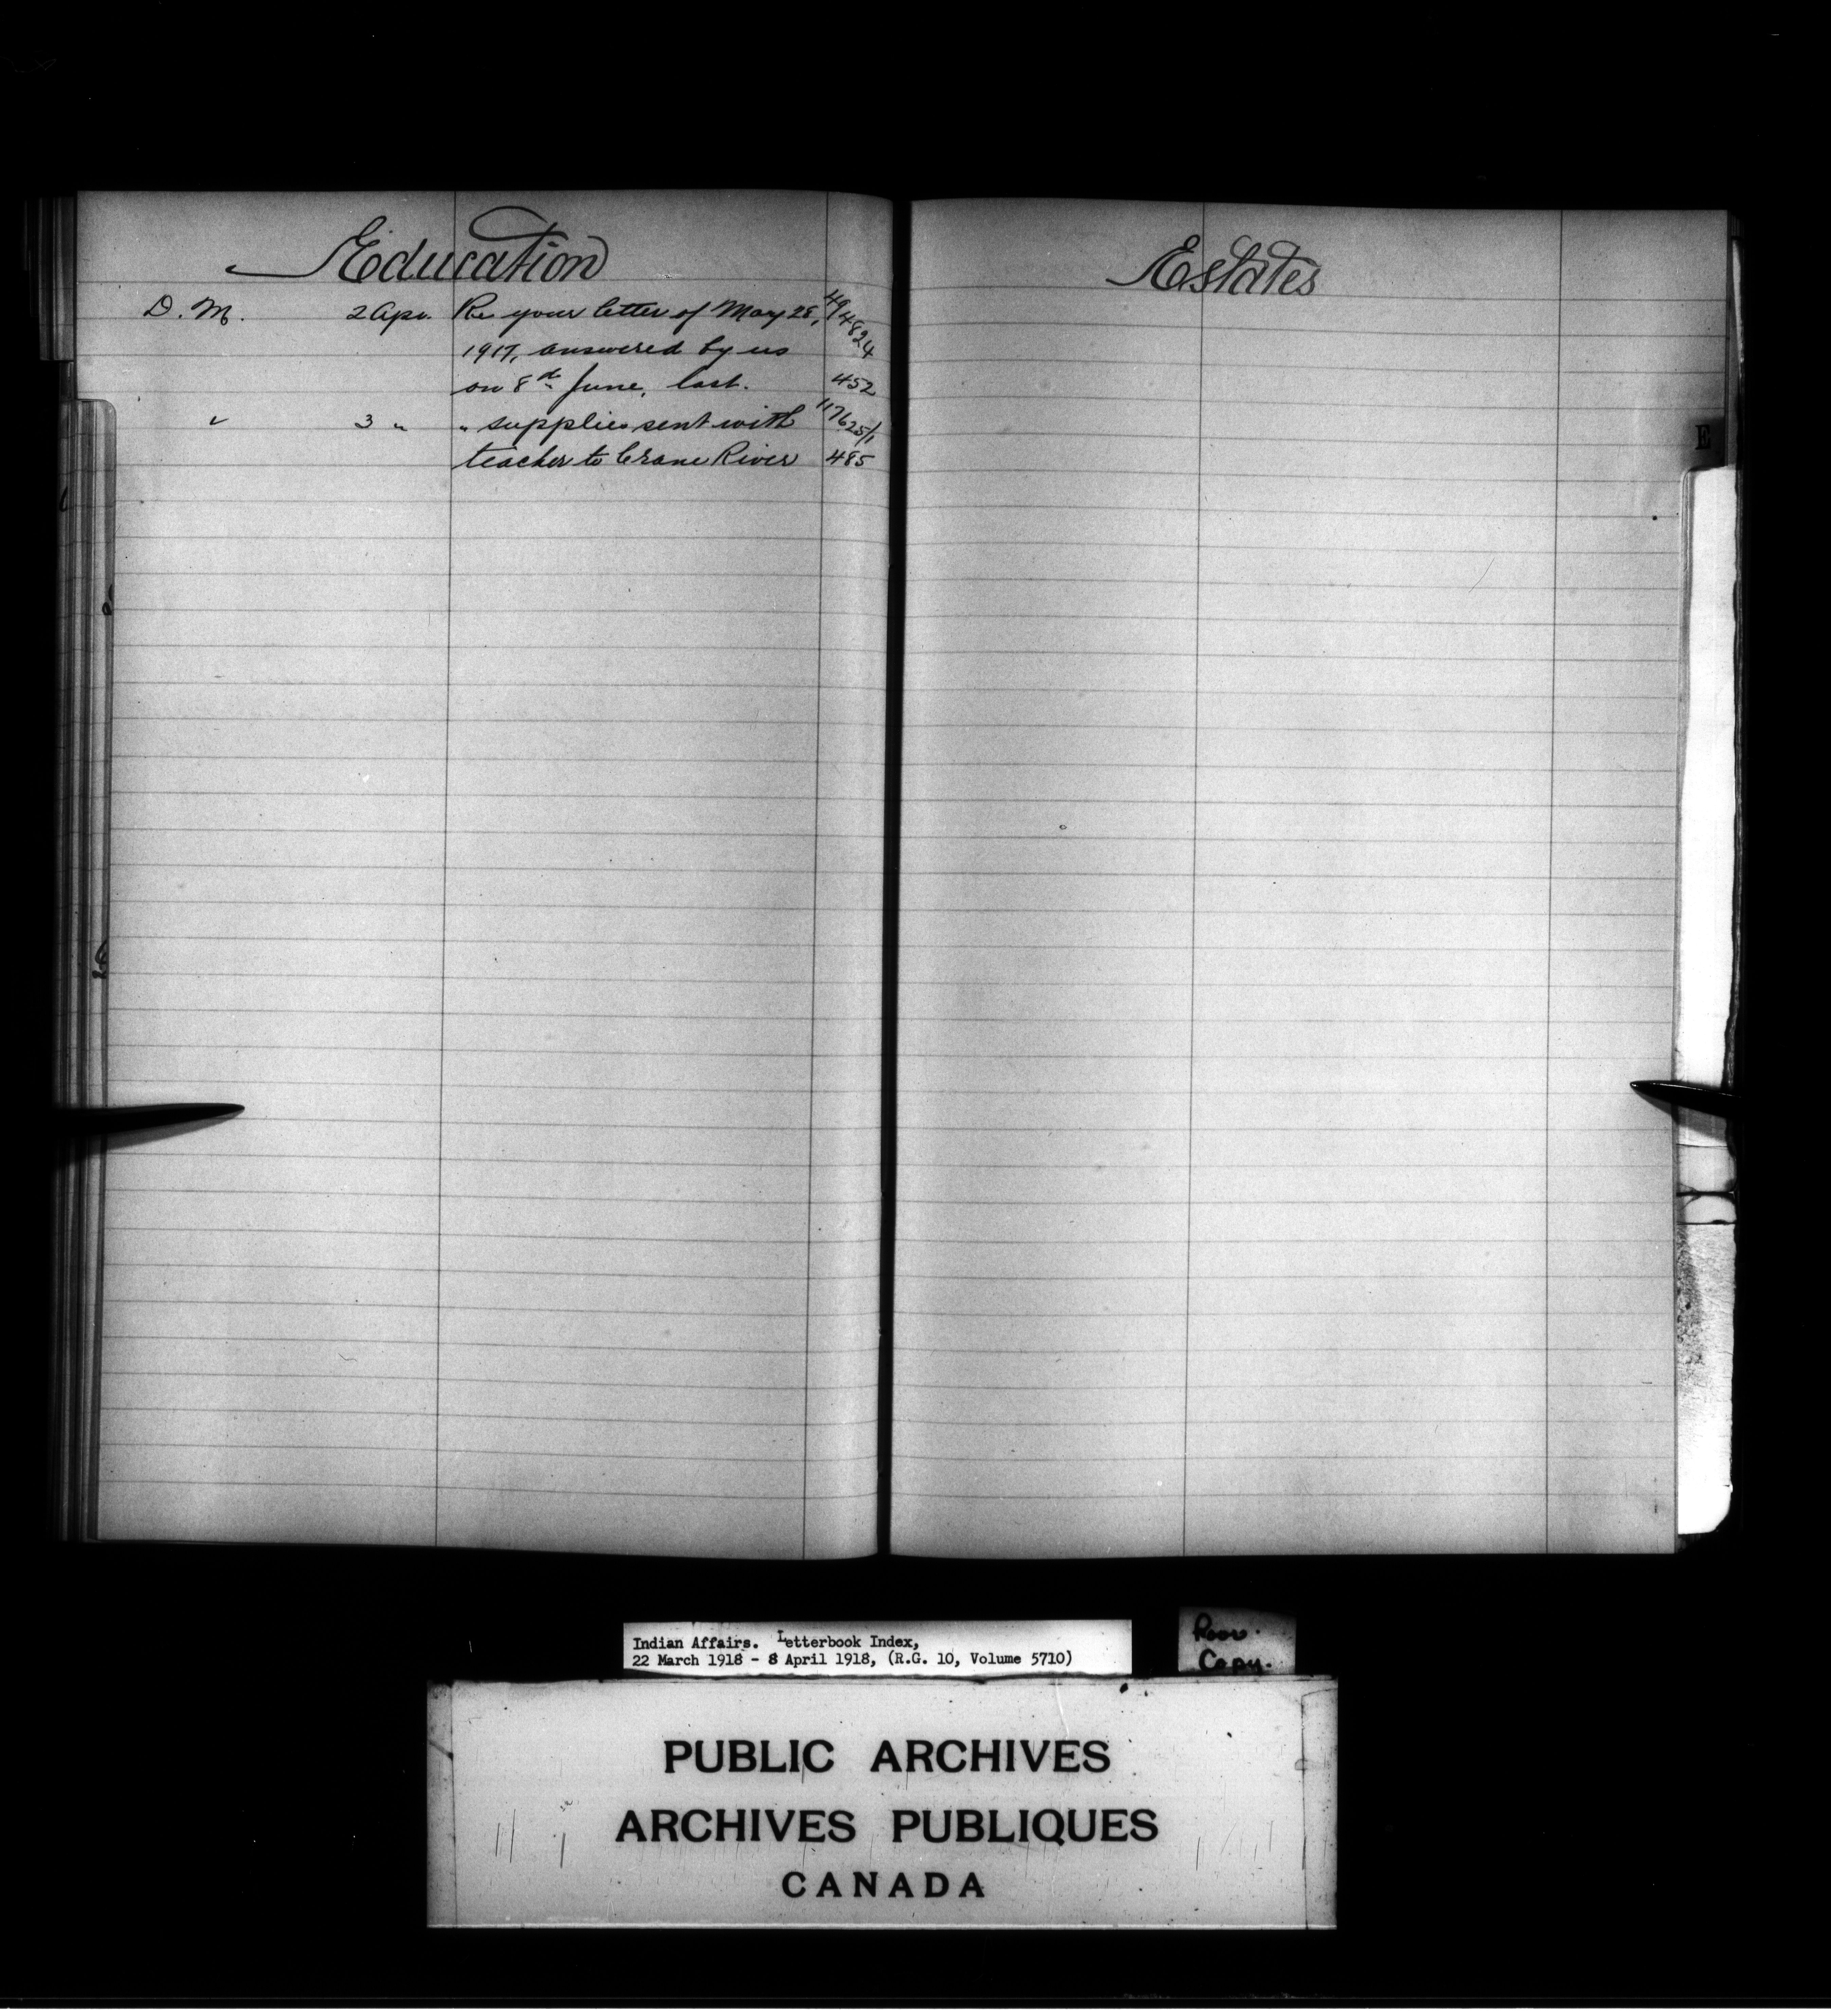 Education
D. M. 2 Apr. Re your letter of May 28, 494824
1917, answered by us
on 8th June, last. 452
" 3 " " supplies sent with 117625/1
teacher to Crane River 485
Estates
E
Indian Affairs. Letterbook Index,
22 March 1918 - 8 April 1918, (R.G. 10, Volume 5710)
Poor.
Copy.
PUBLIC ARCHIVES
ARCHIVES PUBLIQUES
CANADA